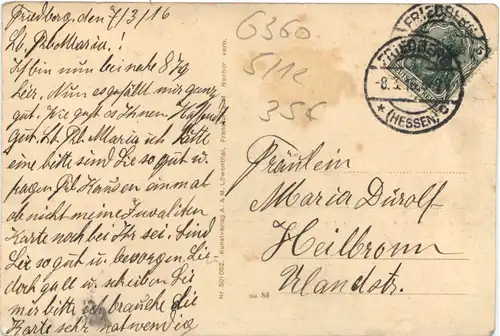 Friedberg, den 7/3/16
Lb. Frl. Maria!
Ich bin nun bei nahe 8 Tg
hier. Nun es gefällt mir ganz
gut. Wie gest es Ihnen,
gut. Lb. Frl. Maria ich hätte
eine bitte seind Sie so gut u.
fragen Frl. einmal
ob nicht meine Invaliten
Karte noch bei Ihr sei. Sind
Sie so gut u. besorgen Sie
doch u. schreiben Sie
mir bitte ich brauche die
Karte sehr notwendig
6360
5/12
356
Nr. 501052, Kunstverlag A. & M. Löwenthal, Nachdr verb.
FRIEDBERG
-8.3.16
*(HESSEN)
Fräulein
Maria Dürolf
Heilbronn
Ulandstr.
84